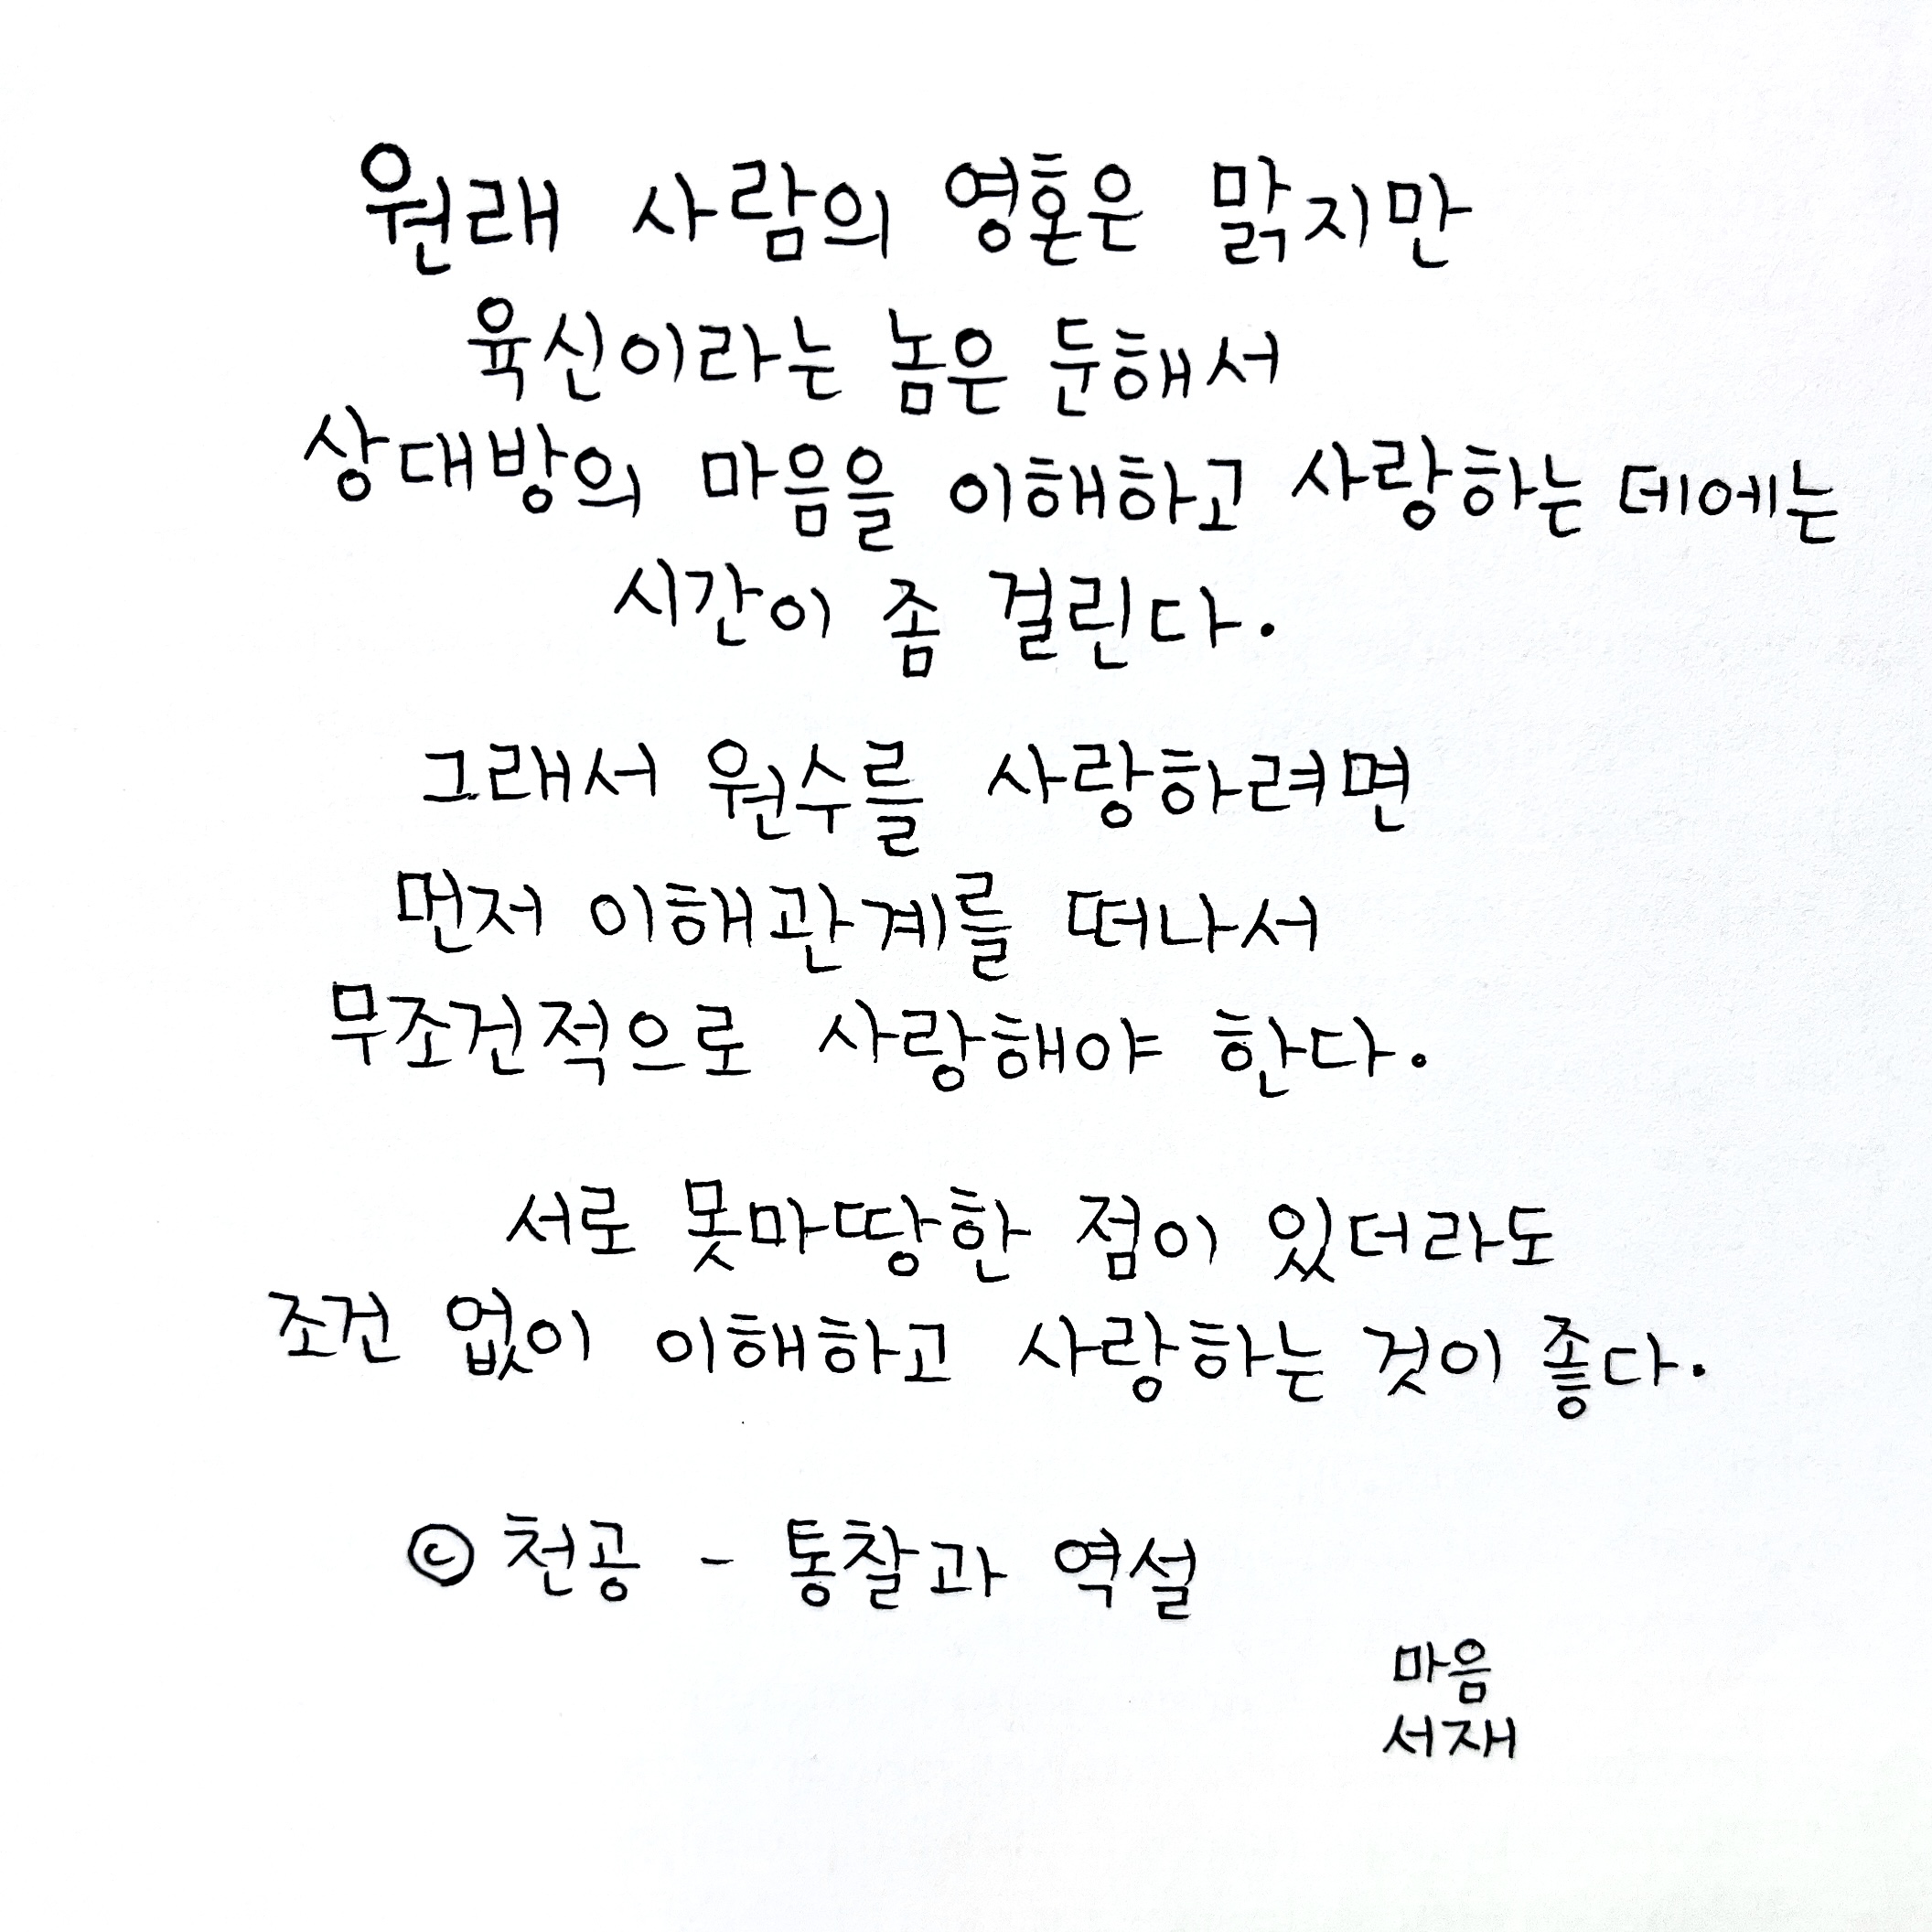 원래 사람의 영혼은 맑지만
육신이라는 놈은 둔해서
상대방의 마음을 이해하고 사랑하는 데에는
시간이 좀 걸린다.
그래서 원수를 사랑하려면
먼저 이해관계를 떠나서
무조건적으로 사랑해야 한다.
서로 못마땅한 점이 있더라도
조건 없이 이해하고 사랑하는 것이 좋다.
© 천공 - 통찰과 역설
마음
서재